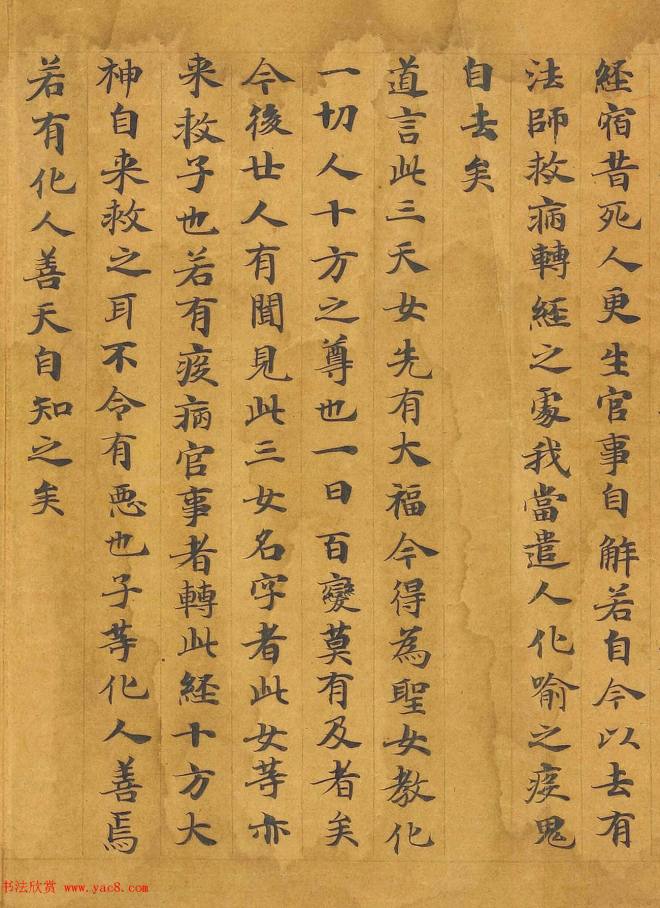 経宿昔死人更生官事自解若自今以去有
法師救病轉経之處我當遣人化喻之疫鬼
自去矣
道言此三天女先有大福今得為聖女教化
一切人十方之尊也一日百變莫有及者矣
今後廿人有聞見此三女名字者此女等亦
来救子也若有疫病官事者轉此経十方大
神自来救之耳不令有惡也子等化人善焉
若有化人善天自知之矣
书法欣赏 www.yac8.com